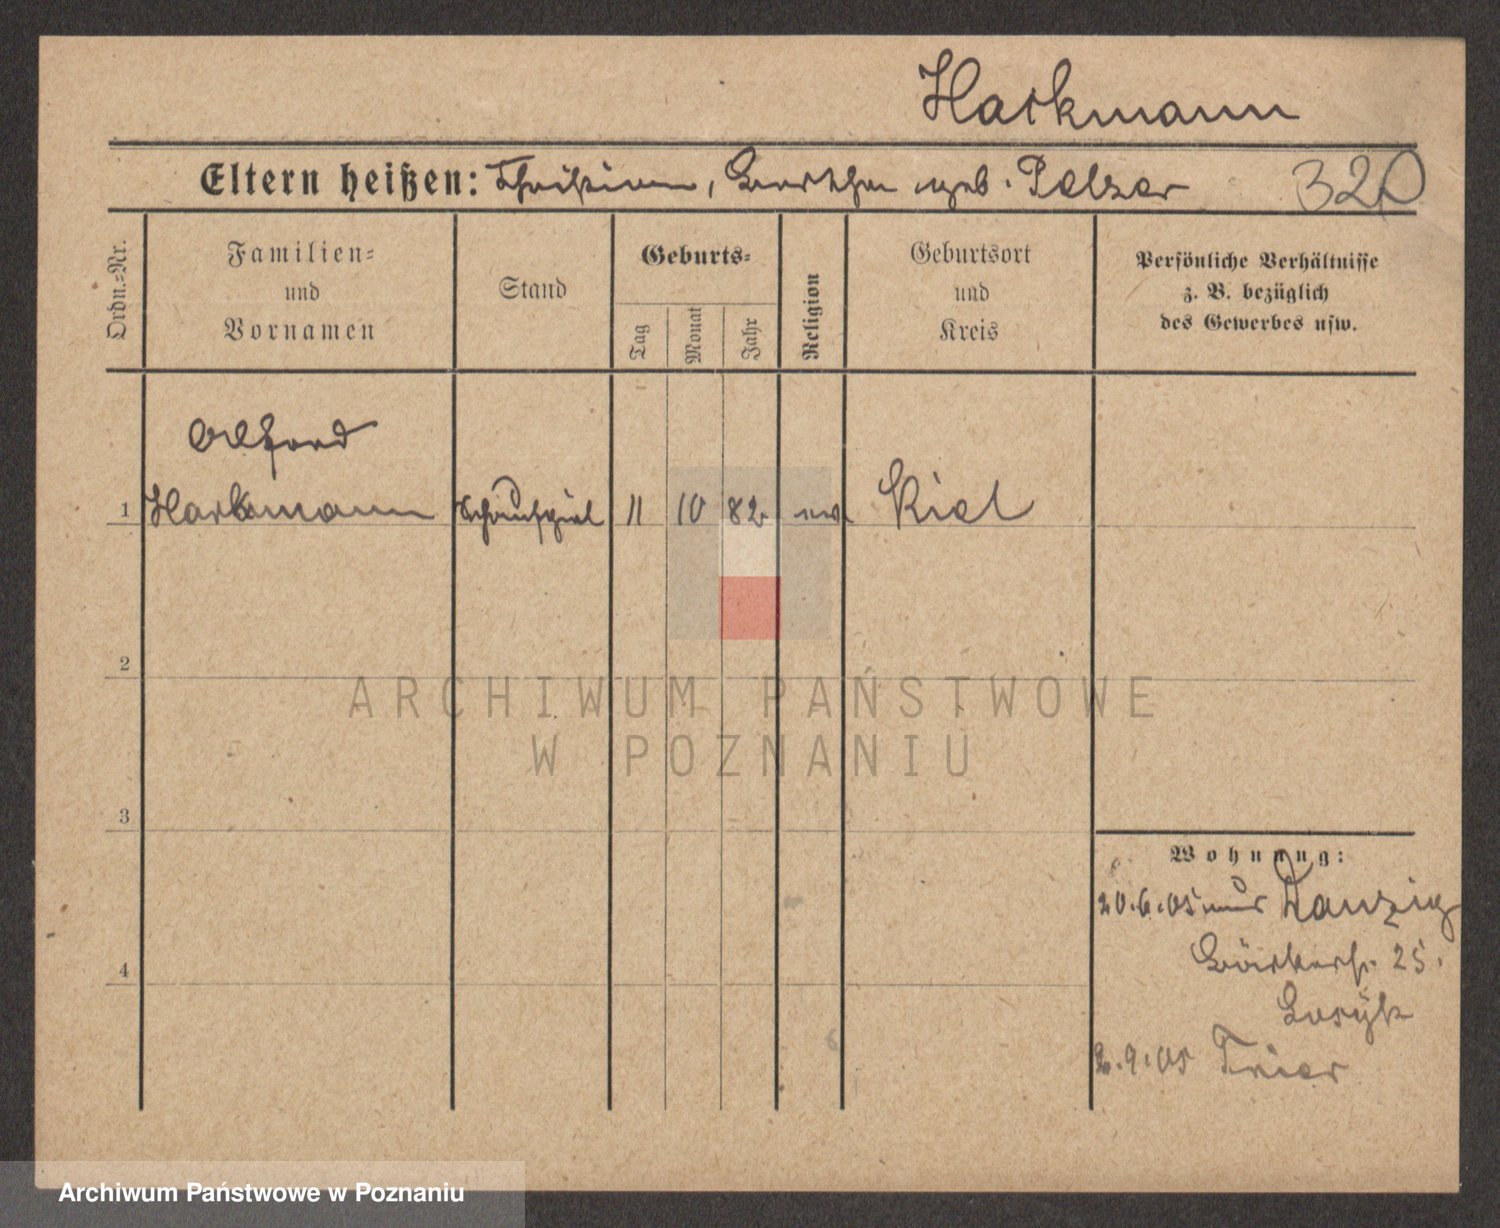 Harkmann
Eltern heißen: Christian, Berta geb. Pelzer 320
Ordn.=Nr.
Familien=
und
Vornamen
Stand
Geburts=
Tag
Monat
Jahr
Religion
Geburtsort
und
Kreis
Persönliche Verhältnisse
z. B. bezüglich
des Gewerbes usw.
Alfred
1 Harkmann Schauspiel 11 10 82 Kiel
2
ARCHIWUM PAŃSTWOWE
W POZNANIU
3
Wohnung:
20.6.05 Danzig
25.
4
2.9.05 Trier
Archiwum Państwowe w Poznaniu